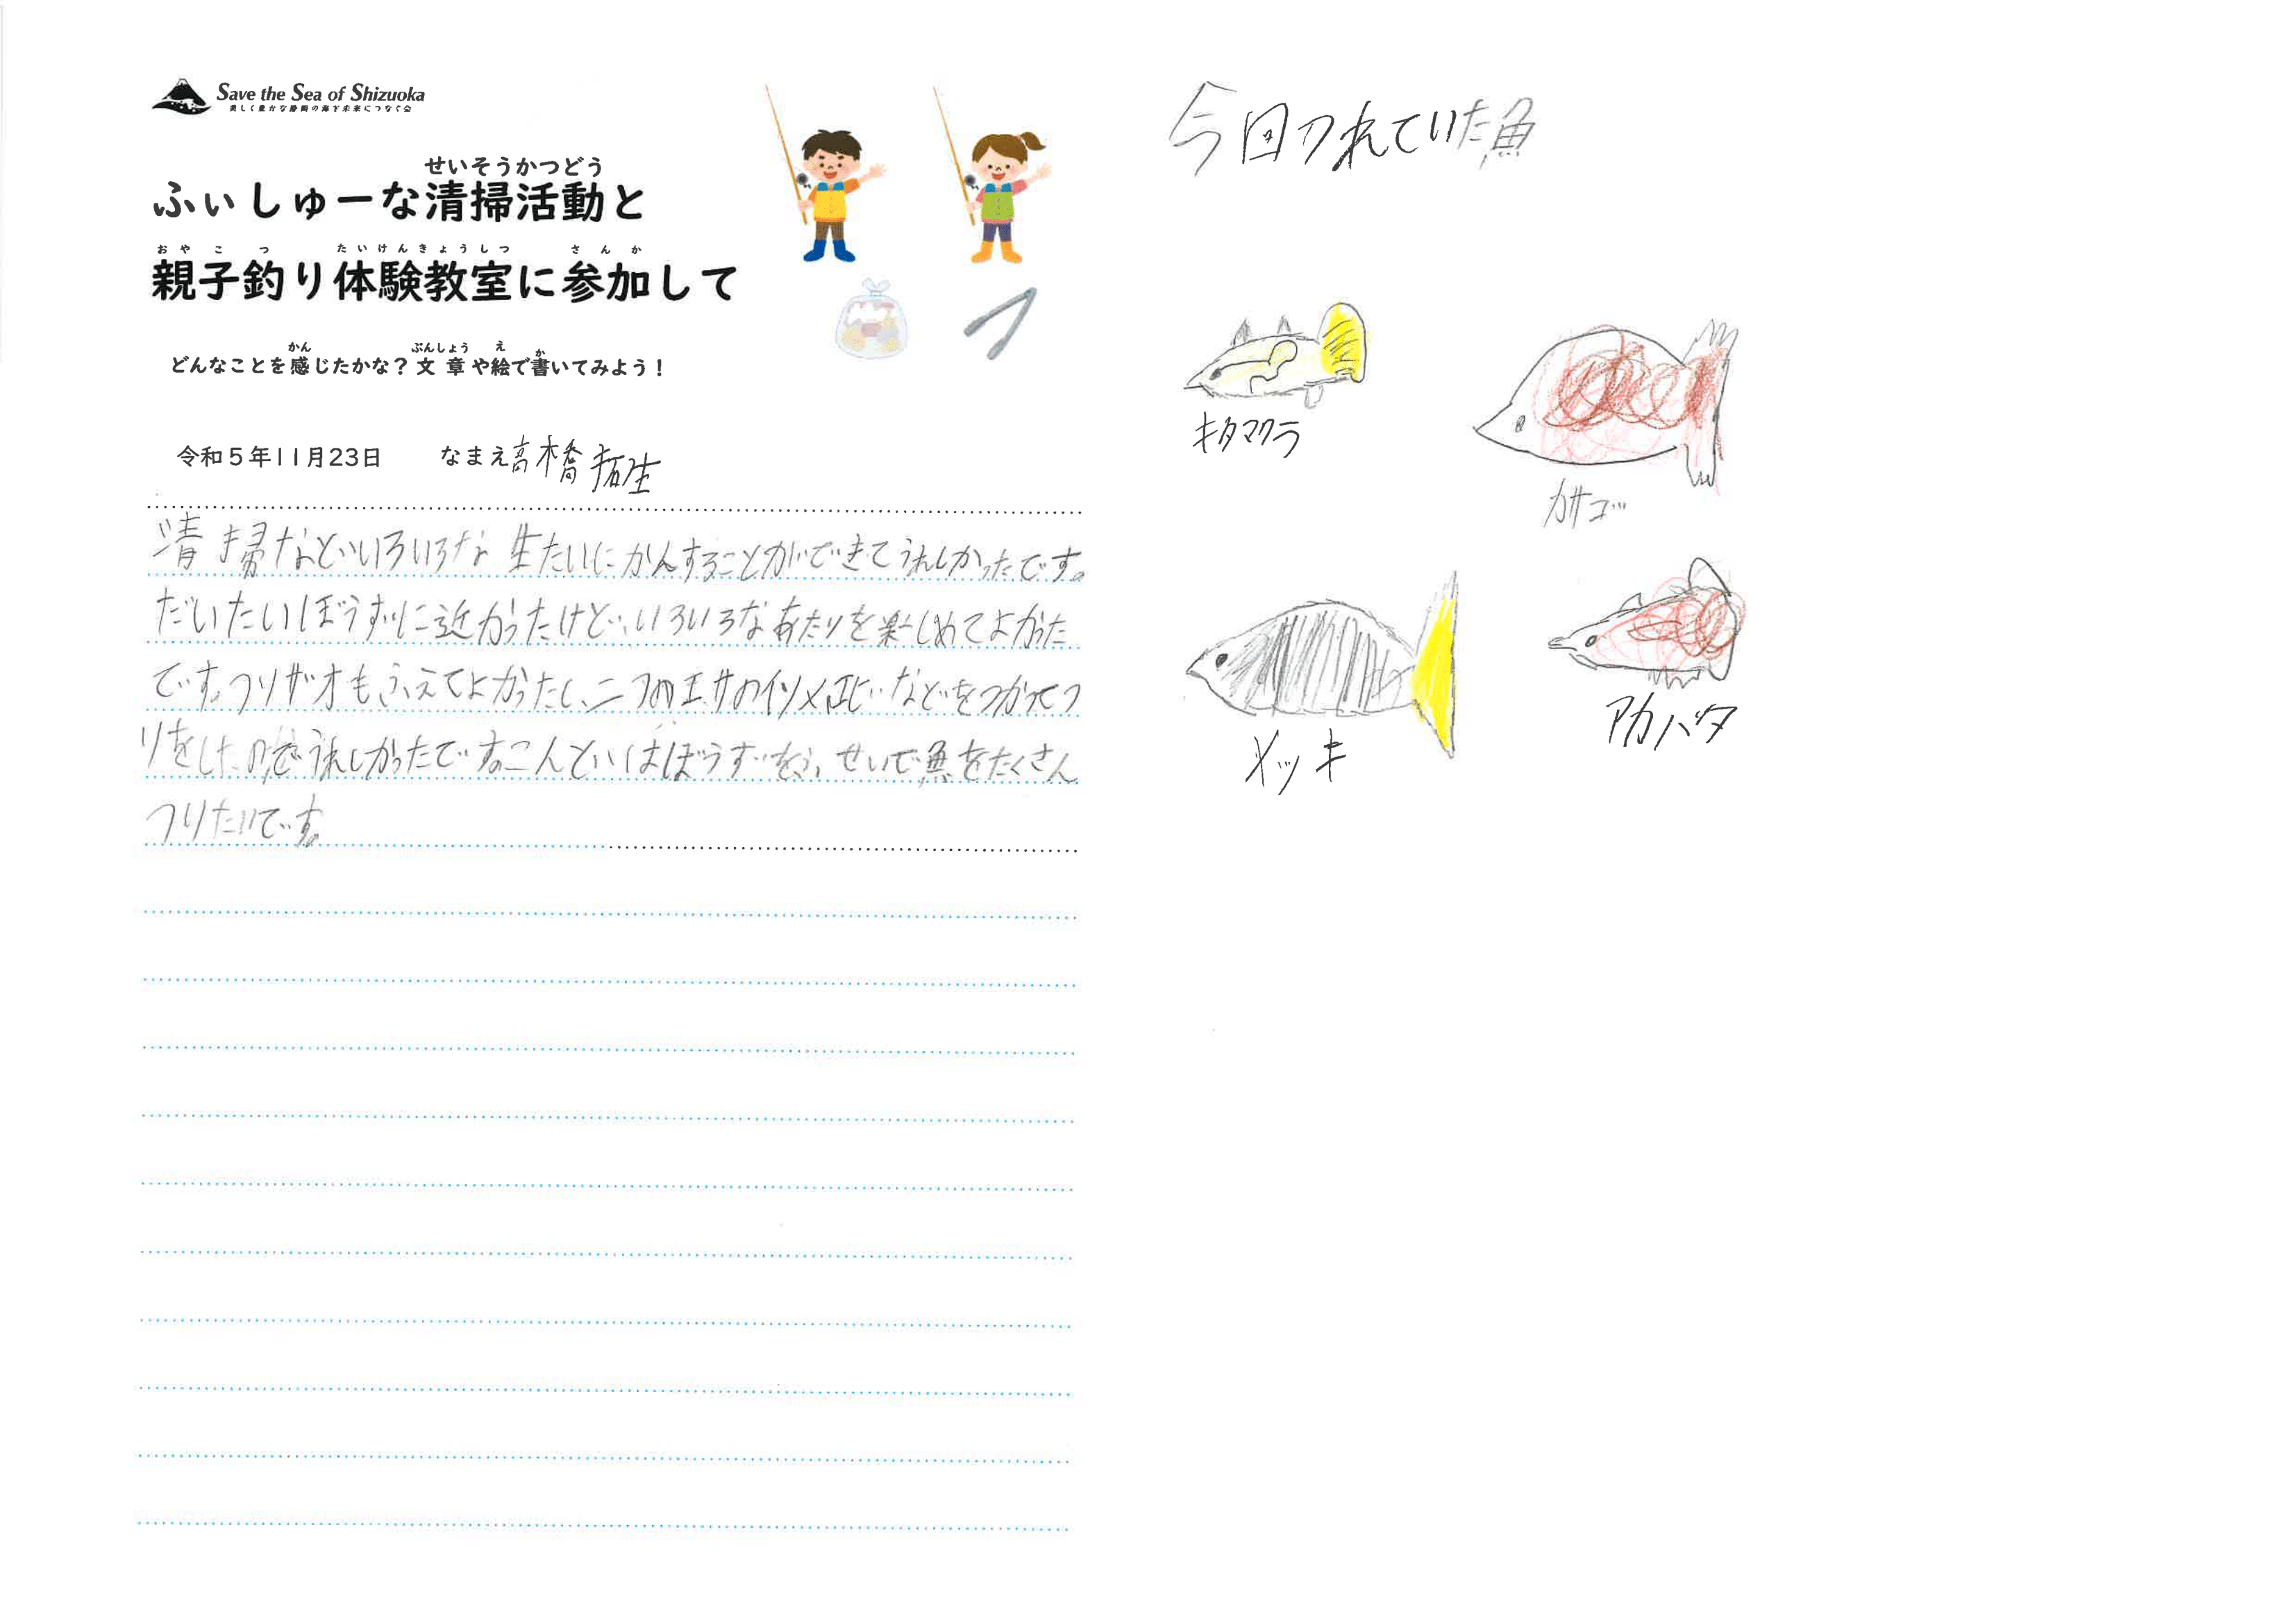 Save the Sea of Shizuoka
美しく豊かな静岡の海を未来につなぐ会
せいそうかつどう
ふぃしゅーな清掃活動と
おやこつ たいけんきょうしつ さんか
親子釣り体験教室に参加して
かん ぶんしょう え か
どんなことを感じたかな？文章や絵で書いてみよう！
令和5年11月23日 なまえ 高橋拓生
清掃などいろいろな生たいにかんすることができてうれしかったです。
だいたいぼうずに近かったけど、いろいろなあたりを楽しめてよかった
です。つりザオもふえてよかったし、二つのエサのイソメ などをつかってつ
りをしたのでうれしかったです。こんどはぼうずをふせいで魚をたくさん
つりたいです。
今回つれていた魚
キタマクラ
カサゴ
メッキ
アカハタ